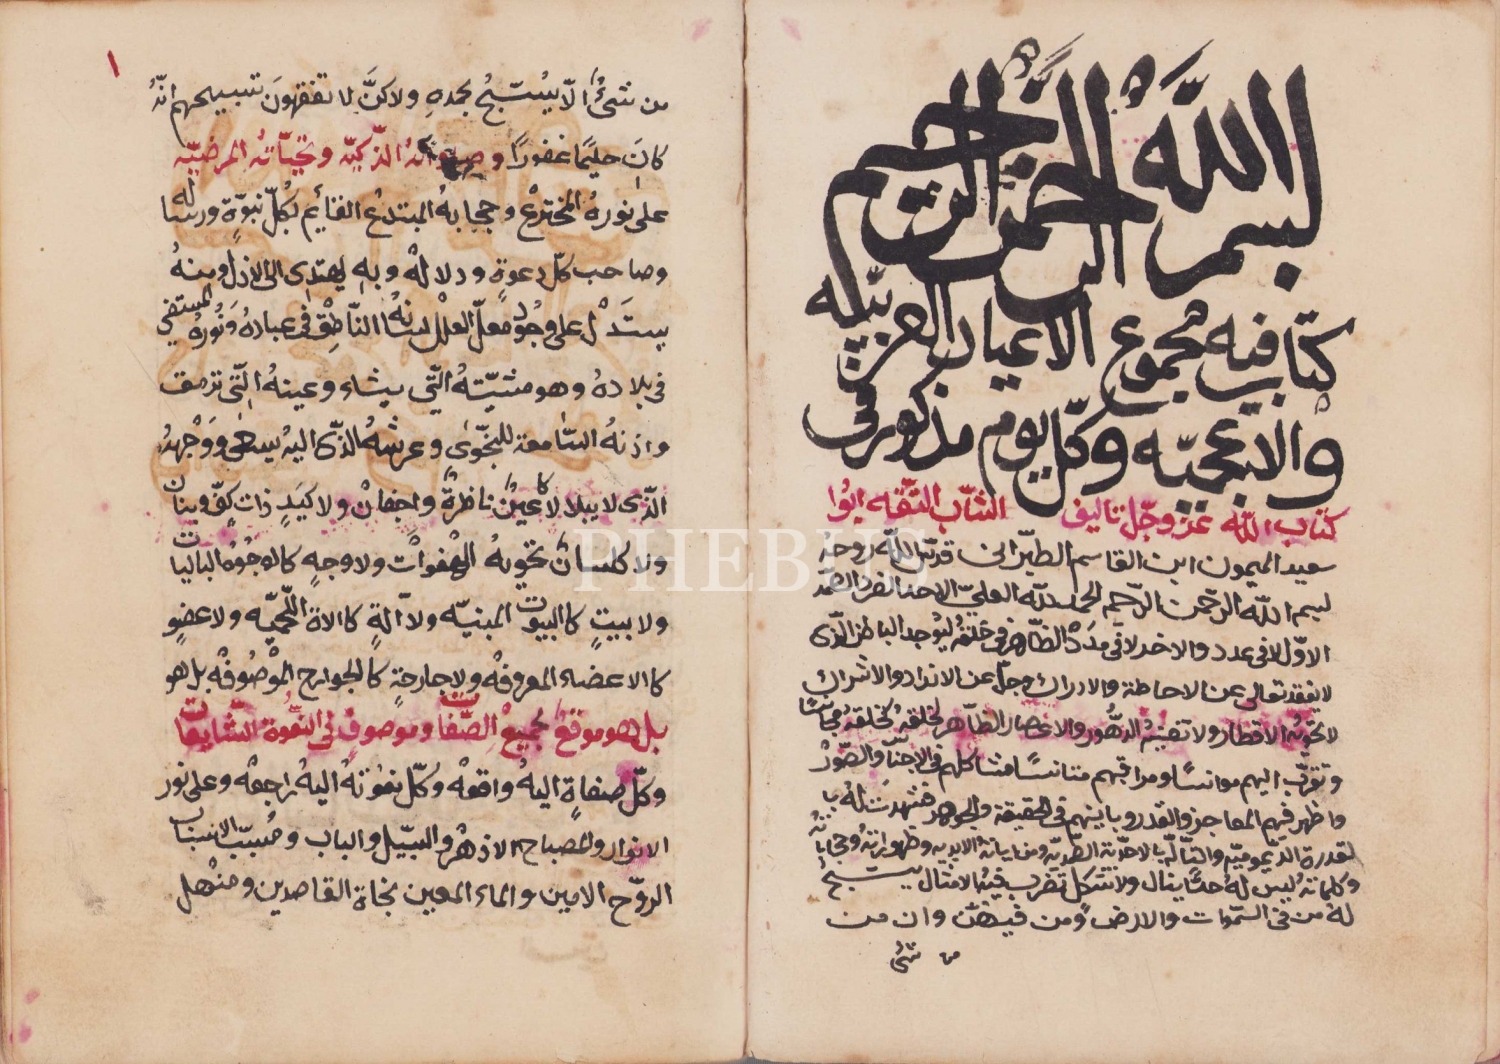 بسم الله الرحمن الرحيم
كتاب فيه مجموع الاعياد العربيّه
والاعجميّه وكلّ يوم مذكور في
كتاب الله عز وجلّ تاليف الشابّ الثّقه ابوا
سعيد الميمون ابن القاسم الطبراني قدسّ الله روحه
بسم الله الرحمن الرحيم الحمد لله العليّ الاحد الفرد الصّمد
الاوّل لا في عدد والاخر لا في مدد الظّاهر في خلقه ليوجد الباطن الذّي
لا يفقد تعالى عن الاحاطة والادراك وجلّ عن الانداد والاشراك
لا تحويه الاقطار ولا تفنيه الدهور والاعصار الظّاهر لخلقه كخلقه مجانسًا
وتقرّب اليهم موانسًا ومراقبهم متانسًا مشاكلهم في الاجناس والصّور
واظهر فيهم المعاجز والقدر وباينهم في الحقيقة والجوهر فشهدت له با
لقدرة الدّيموميّه والتألّه بالاحديّة الابديه وظهوراته
وكلماته ليس له حدًّا ينال ولا شكل تضرب فيه الامثال يسبّح
له من في السّموات والارض ومن فيهنّ وان من
من شئ
١
من شئ الّا يسبّح بحمده ولاكنّ لا تفقهون تسبيحهم انّهُ
كان حليمًا غفورًا الذّكيّه وتحيّاته المرضيّه
على نوره المخترع وحجابه المبتدع القائم بكلّ نبوّة ورساله
وصاحب كلّ دعوةٍ ودلاله وبه يهتدى الى الازل ومنه
يستدل على وجود معلّ العلل لسانه النّاطق في عباده ونوره المستضي
في بلاده وهو مشيّته الّتي يشاء وعينه الّتي ترمق
واذنه السّامعة للنّجوى وعرشه الذّى اليه يسعى ووجهه
الذّى لا يبلا لا كاعين ناظرة واجفان ولا كيدٍ ذات كفّ وبنان
ولا كلسان تحويه اللهوات ولا وجهٍ كالوجوه الباليات
ولا بيتٍ كالبيوت المبنيّه ولا آلةٍ كالالاة اللّحميّه ولا عضوٍ
كالاعضاء المعروفه ولا جارحةٍ كالجوارح الموصوفه بل هو
بل هو موقع لجميع الصّفات وموصوف في النّبوة السّابقات
وكلّ صفاةٍ اليه واقعه وكلّ نعوته اليه راجعه وعلى نور
الانوار والمصباح الازهر والسبيل والباب ومسبّب الاسباب
الروّح الامين والماء المعين نجاة القاصدين ومنهل
PHEBUS